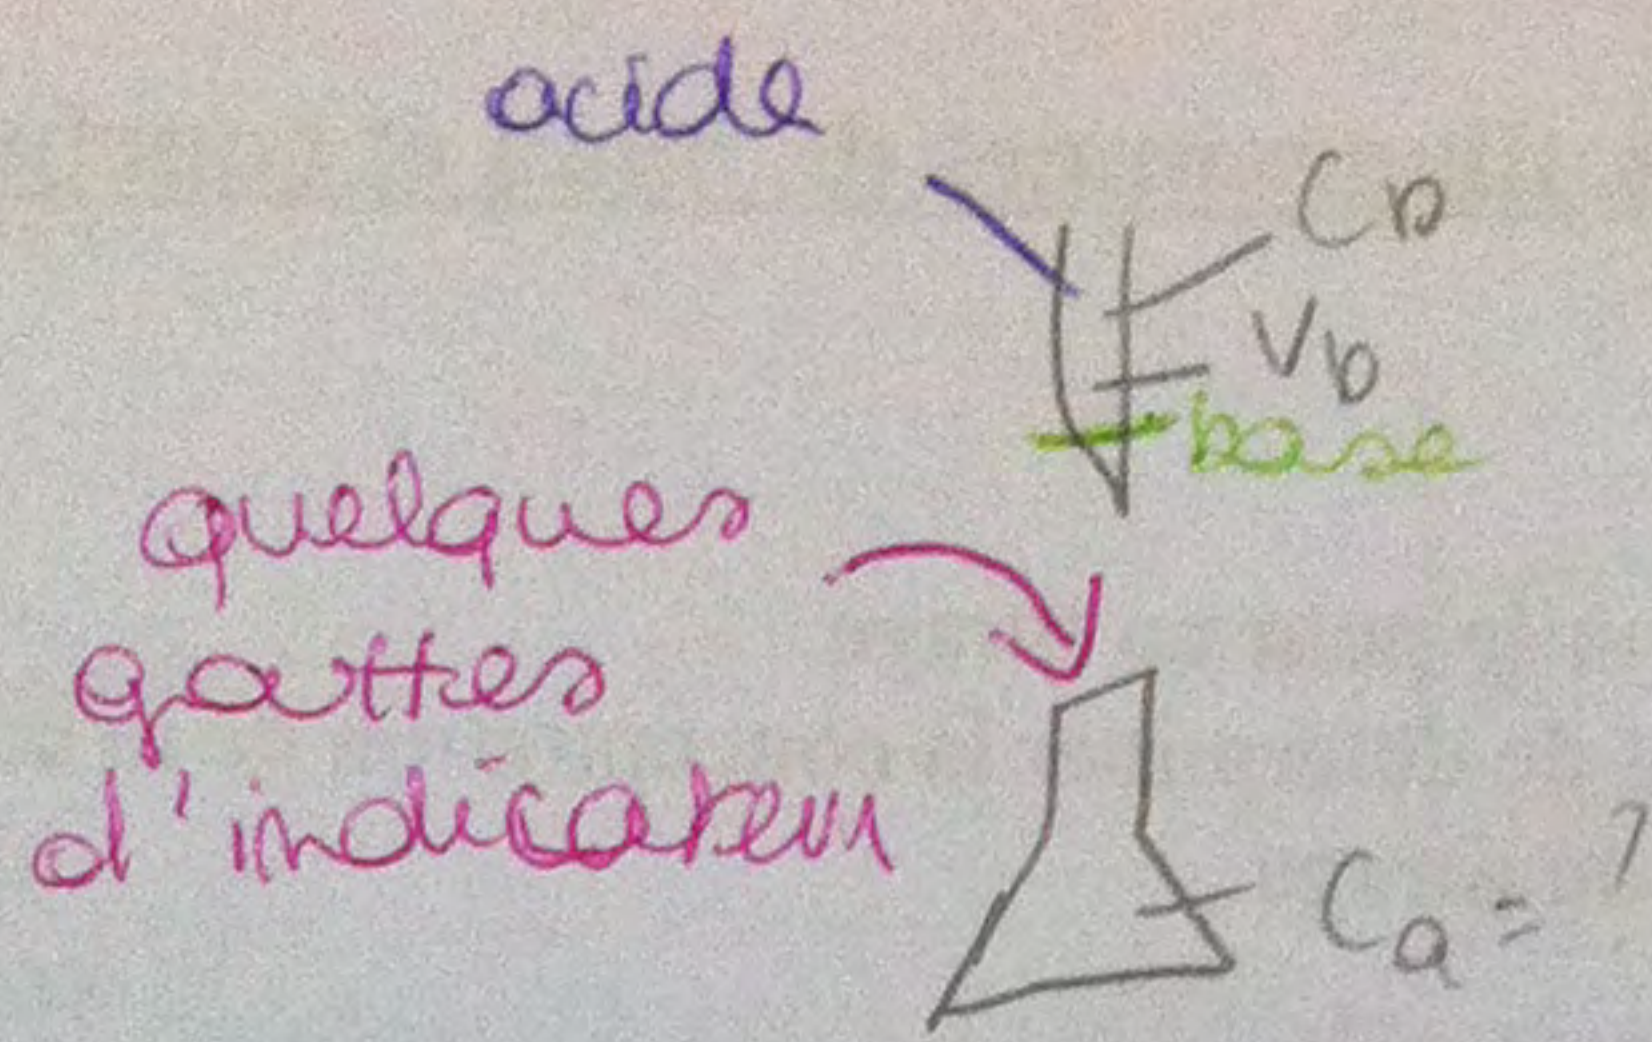 acide
Cb
Vb
base
quelques
gouttes
d'indicateur
Ca = ?